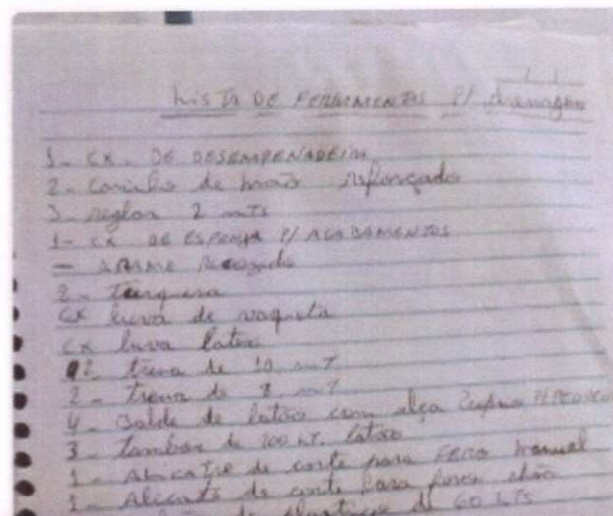 LISTA DE FERRAMENTAS P/ drenagem
1- CX. DE DESEMPENADEIRA
2- carinho de mão reforçado
3- reglon 2 mts
1- CX DE ESPONJA P/ ACABAMENTOS
- ARAME Recozido
2- Turquesa
CX luva de vaqueta
CX luva latex
2- trena de 10 mT
2- trena de 8 mT
4- Balde de latão com alça
3- Tambor de 200 LT. latão
1- Alicate de corte para FERRO manual
1- Alicate de corte para
de 60 LTS